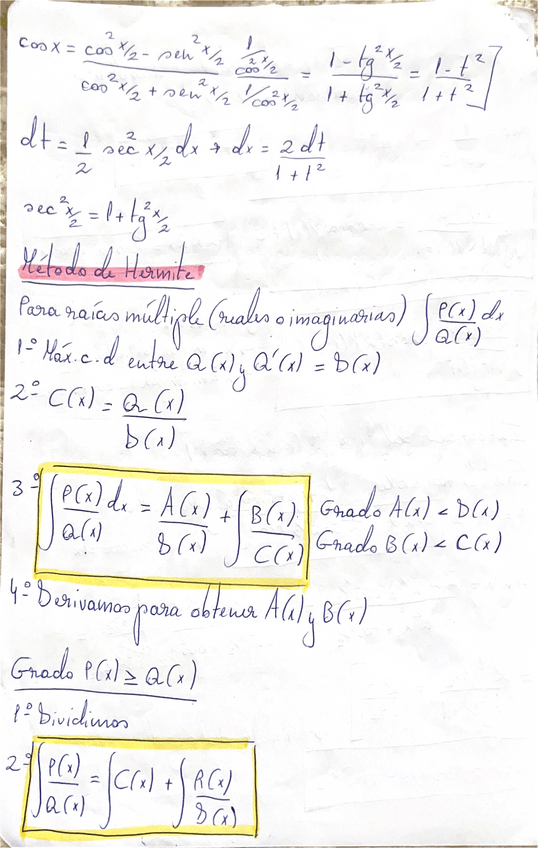 cos x = (cos² x/2 - sen² x/2)/(cos² x/2 + sen² x/2) · (1/cos² x/2)/(1/cos² x/2) = (1 - tg² x/2)/(1 + tg² x/2) = (1 - t²)/(1 + t²)]
dt = 1/2 sec² x/2 dx → dx = 2 dt/(1 + t²)
sec² x/2 = 1 + tg² x/2
Método de Hermite
Para raíces múltiple (reales o imaginarias) ∫ P(x)/Q(x) dx
1º Máx. c. d entre Q(x) y Q'(x) = D(x)
2º C(x) = Q(x)/D(x)
3º ∫ P(x)/Q(x) dx = A(x)/D(x) + ∫ B(x)/C(x)
Grado A(x) < D(x)
Grado B(x) < C(x)
4º Derivamos para obtener A(x) y B(x)
Grado P(x) ≥ Q(x)
1º Dividimos
2º ∫ P(x)/Q(x) = ∫ C(x) + ∫ R(x)/D(x)